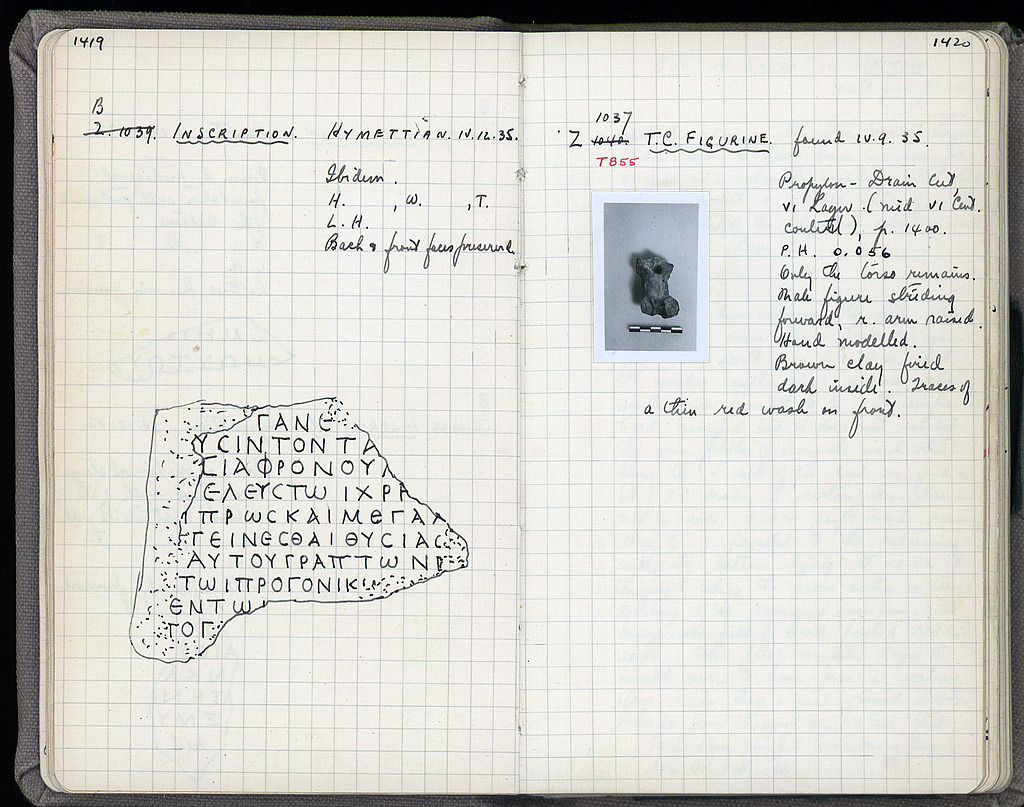 1419
B
Z. 1039. INSCRIPTION. HYMETTIAN. IV.12.35.
Ibidem.
H. , W. , T.
L.H.
Back & front faces preserved.
ΓΑΝΕ
ΥϹΙΝΤΟΝΤΑ
ϹΙΑΦΡΟΝΟΥΛ
ΕΛΕΥϹΤΩΙΧΡΡ
ΙΠΡΩϹΚΑΙΜΕΓΑΛ
ΓΕΙΝΕϹΘΑΙΘΥϹΙΑϹ
ΑΥΤΟΥΓΡΑΠΤΩΝ
ΤΩΙΠΡΟΓΟΝΙΚ
ΕΝΤΩΙ
ΤΟΓ
1420
1037
Z 1040. T.C. FIGURINE. found IV.9.35.
T855
Propylon - Drain Cut,
VI Layer. (mid VI Cent.
context), p. 1400.
P.H. 0.056
Only the torso remains.
Male figure striding
forward, r. arm raised.
Hand modelled.
Brown clay fired
dark inside. Traces of
a thin red wash on front.